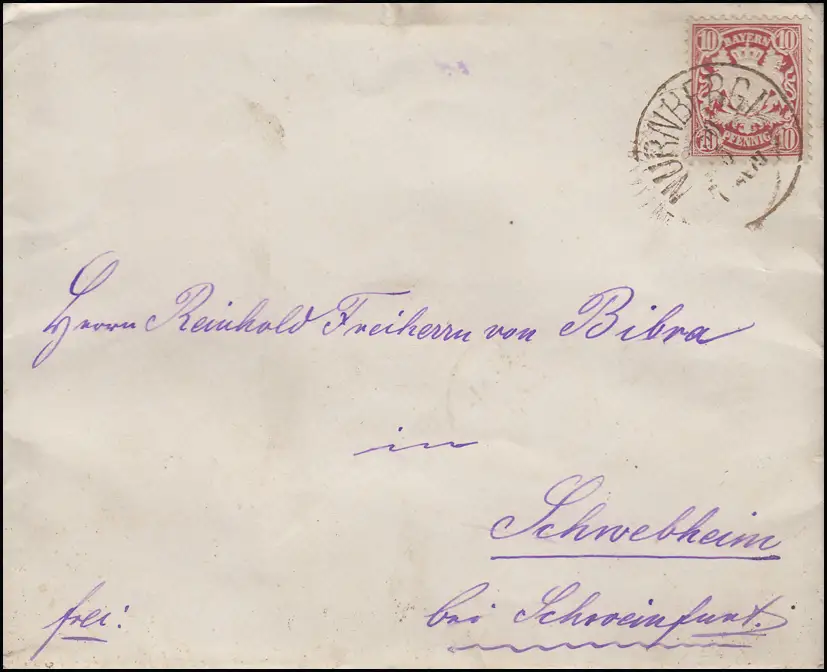 10 BAYERN 10
10 PFENNIG 10
NÜRNBERG I
Herrn Reinhold Freiherrn von Bibra
in
Schwebheim
frei: bei Schweinfurt.